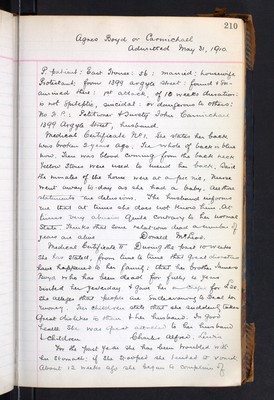 210
Agnes Boyd or Carmichael
Admitted May 31, 1910
P. patient: East House: 56: married: housewife
Protestant: from 1399 Argyle Street: found
1st attack, of 10 weeks duration:
is not epileptic, suicidal: or dangerous to others:
No S.P.: Petitioner John Carmichael
1399 Argyle Street, husband.
Medical Certificate No I. She states her back
was broken 2 years ago. The whole of back is blue
now. Hens was blood coming from the back neck
Yellow were used to her back, And
the inmates of the home were at Nurse
went away to-day as she had a baby. All these
statements are delusions. The husband informs
me that at times she does not know him At
times very Quite contrary to her normal
State. Thinks that some relations dead a number of
years are alive. Donald
Medical Certificate II During the past 10 weeks
she has stated, from time to time that great
have happened to her family; that her brother James
Boyd who has been dead for forty six years
visited her yesterday & gave her for £20
she alleges that people are endeavouring to steal her
money. Her children state that she suddenly takes
Great dislikes to them & her husband. In good
health she was great attached to her husband
& children Charles
For the past year she has been troubled with
her stomach: if she stooped she tended to vomit
About 12 weeks ago she began to complain of